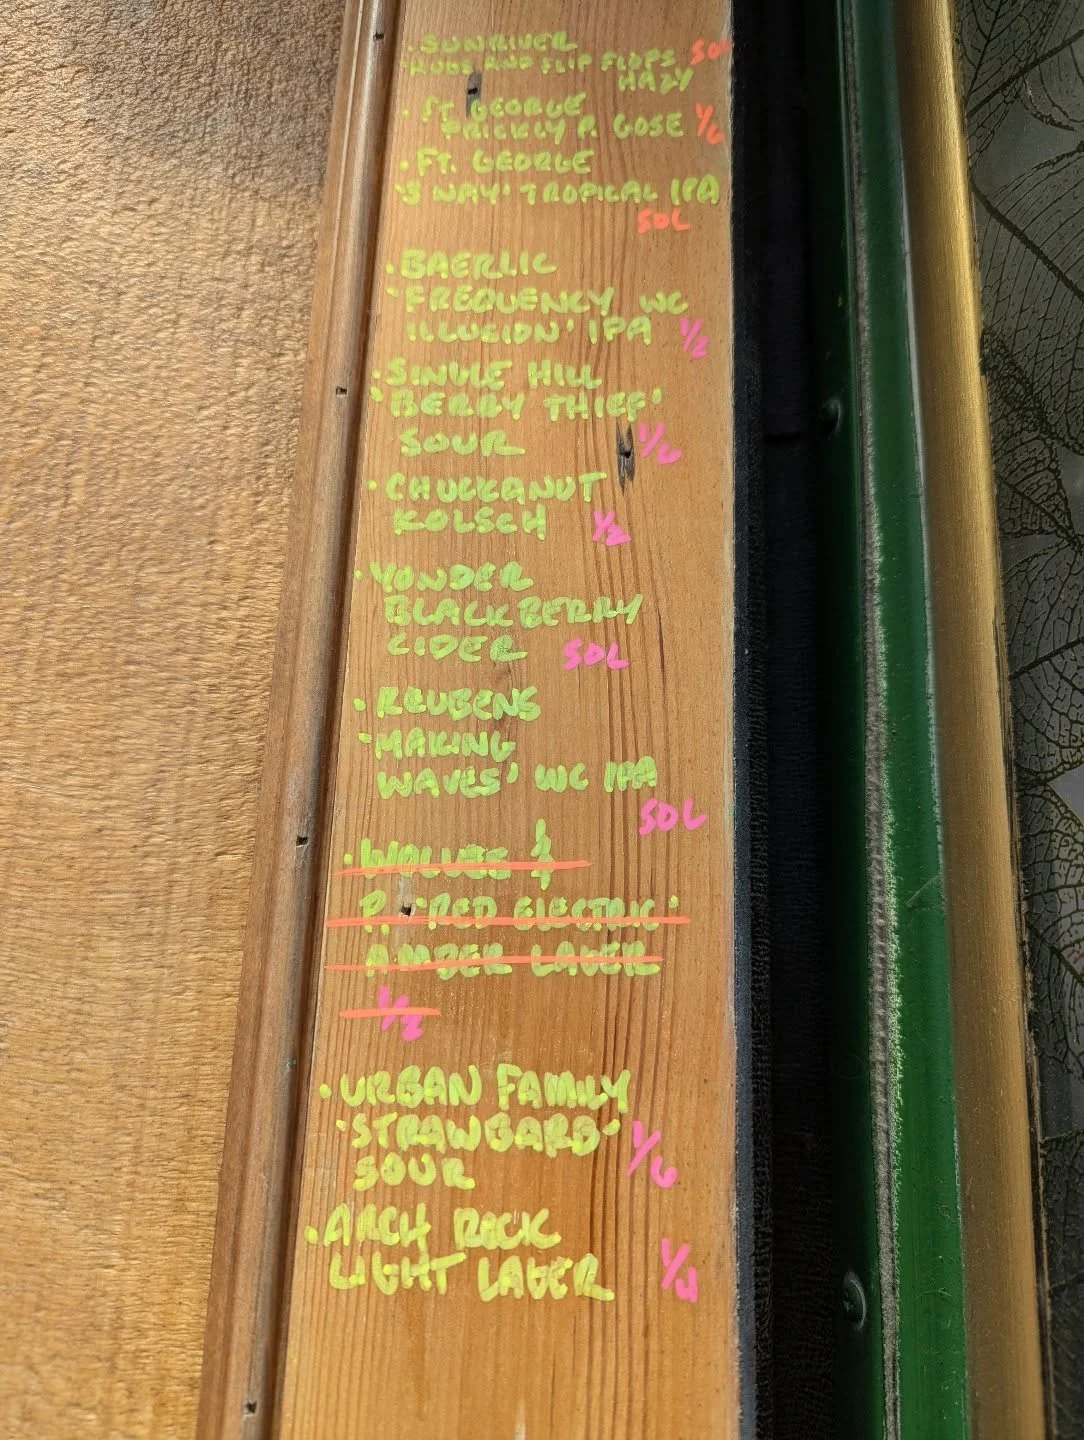 · SUNRIVER
'RUGS AND FLIP FLOPS SOL
HAZY
· FT. GEORGE
PRICKLY P. GOSE 1/6
· FT. GEORGE
'S WAY' TROPICAL IPA
SOL
· BAERLIC
'FREQUENCY WC
ILLUSION' IPA 1/2
· SINGLE HILL
'BERRY THIEF'
SOUR 1/6
· CHUCKANUT
KOLSCH 1/2
· YONDER
BLACKBERRY
CIDER SOL
· REUBENS
'MAKING
WAVES' WC IPA
SOL
· WOLVES &
P. 'RED ELECTRIC'
AMBER LAGER
1/2
· URBAN FAMILY
'STRAWBARB'
SOUR 1/6
· ARCH ROCK
LIGHT LAGER 1/4